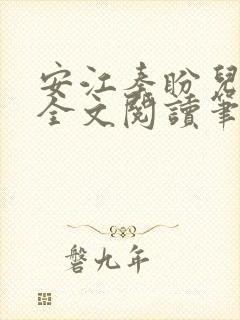 安江秦盼兒
全文閱讀筆
磬九年